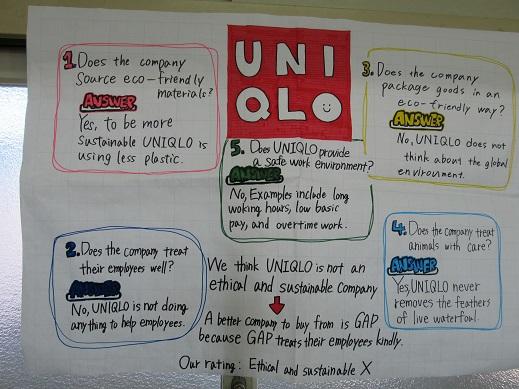 UNI
QLO
1. Does the company
Source eco-friendly
materials?
ANSWER
Yes, to be more
Sustainable UNIQLO is
using less plastic.
3. Does the company
package goods in an
eco-friendly way?
ANSWER
No, UNIQLO does not
think about the global
environment.
5. Does UNIQLO provide
a safe work environment?
ANSWER
No, Examples include long
woking hours, low basic
pay, and overtime work.
2. Does the company treat
their employees well?
ANSWER
No, UNIQLO is not doing
anything to help employees.
4. Does the company treat
animals with care?
ANSWER
Yes, UNIQLO never
removes the feathers
of live waterfoul.
We think UNIQLO is not an
ethical and sustainable company
A better company to buy from is GAP,
because GAP treats their employees kindly.
Our rating: Ethical and sustainable X